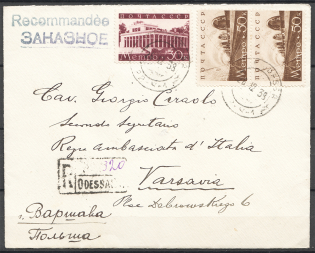 Recommandée
ЗАКАЗНОЕ
ПОЧТА СССР
Метро 30к
ПОЧТА СССР
Метро 50к
ПОЧТА СССР
Метро 50к
Cav. Giorgio Ciraolo
Secondo Segretario
Regia ambasciata d'Italia
Varsavia
Plac Dąbrowskiego 6
R
320
ODESSA
г. Варшава
Польша